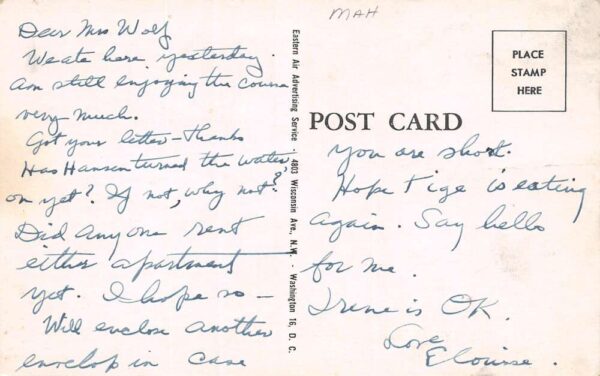 Dear Mrs Wolf
We ate here yesterday.
Am still enjoying the course
very much.
Got your letter - thanks
Has Hansen turned the water
on yet? If not, why not?
Did anyone rent
either apartment
yet. I hope so -
Will enclose another
envelop in case
Eastern Air Advertising Service - 4803 Wisconsin Ave., N.W. - Washington 16, D. C.
MAH
PLACE
STAMP
HERE
POST CARD
you are short.
Hope Tige is eating
again. Say hello
for me.
Irene is OK.
Love
Elouise.